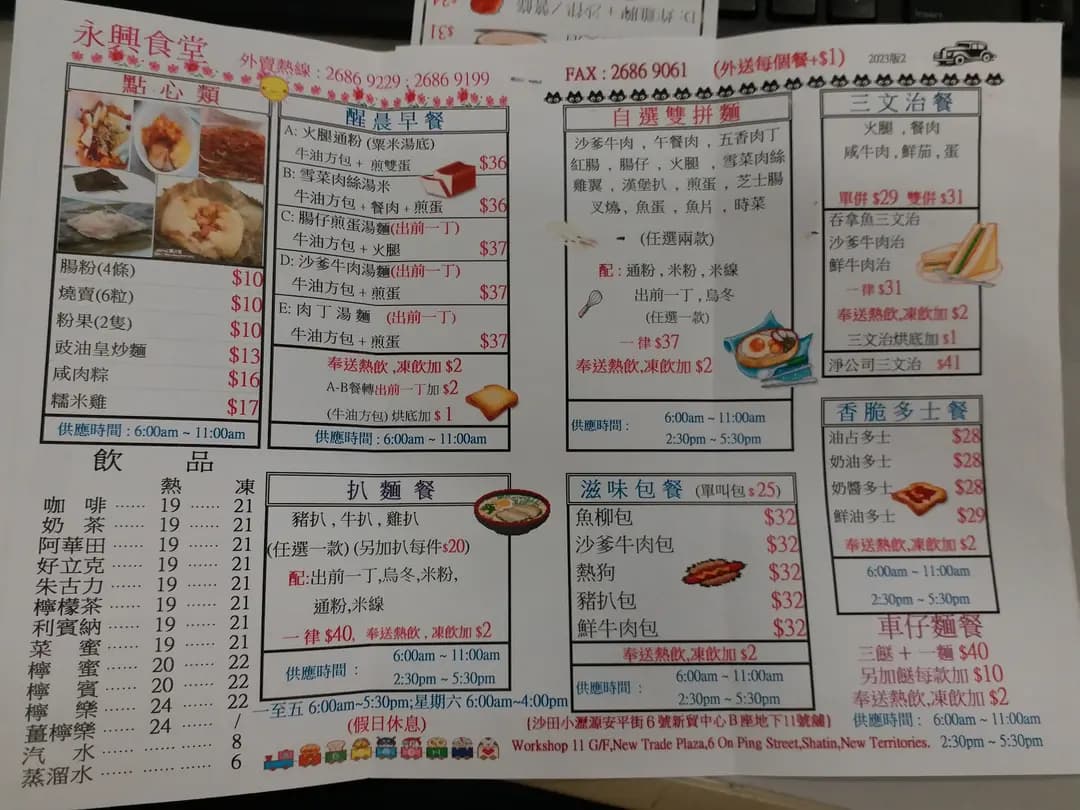 永興食堂
外賣熱線 : 2686 9229 ; 2686 9199
FAX : 2686 9061
(外送每個餐+$1)
2023版2
$31
點心類
腸粉(4條) $10
燒賣(6粒) $10
粉果(2隻) $10
豉油皇炒麵 $13
咸肉粽 $16
糯米雞 $17
供應時間 : 6:00am ~ 11:00am
醒晨早餐
A: 火腿通粉 (粟米湯底)
牛油方包 + 煎雙蛋 $36
B: 雪菜肉絲湯米
牛油方包 + 餐肉 + 煎蛋 $36
C: 腸仔煎蛋湯麵(出前一丁)
牛油方包 + 火腿 $37
D: 沙爹牛肉湯麵(出前一丁)
牛油方包 + 煎蛋 $37
E: 肉丁湯麵 (出前一丁)
牛油方包 + 煎蛋 $37
奉送熱飲,凍飲加 $2
A-B餐轉出前一丁加 $2
(牛油方包) 烘底加 $ 1
供應時間 : 6:00am ~ 11:00am
自選雙拼麵
沙爹牛肉 , 午餐肉 , 五香肉丁
紅腸 , 腸仔 , 火腿 , 雪菜肉絲
雞翼 , 漢堡扒 , 煎蛋 , 芝士腸
叉燒 , 魚蛋 , 魚片 , 時菜
(任選兩款)
配 : 通粉 , 米粉 , 米線
出前一丁 , 烏冬
(任選一款)
一律 $37
奉送熱飲,凍飲加 $2
供應時間 : 6:00am ~ 11:00am
2:30pm ~ 5:30pm
三文治餐
火腿 , 餐肉
咸牛肉 , 鮮茄 , 蛋
單併 $29 雙併 $31
吞拿魚三文治
沙爹牛肉治
鮮牛肉治
一律 $31
奉送熱飲,凍飲加 $2
三文治烘底加 $1
淨公司三文治 $41
香脆多士餐
油占多士 $28
奶油多士 $28
奶醬多士 $28
鮮油多士 $29
奉送熱飲,凍飲加 $2
6:00am ~ 11:00am
2:30pm ~ 5:30pm
飲品
熱 凍
咖啡 ...... 19 ...... 21
奶茶 ...... 19 ...... 21
阿華田 ...... 19 ...... 21
好立克 ...... 19 ...... 21
朱古力 ...... 19 ...... 21
檸檬茶 ...... 19 ...... 21
利賓納 ...... 19 ...... 21
菜蜜 ...... 19 ...... 21
檸蜜 ...... 20 ...... 22
檸賓 ...... 20 ...... 22
檸樂 ...... 24 ...... 22
薑檸樂 ...... 24 ...... /
汽水 ...... 8
蒸溜水 ...... 6
扒麵餐
豬扒 , 牛扒 , 雞扒
(任選一款) (另加扒每件$20)
配:出前一丁,烏冬,米粉,
通粉,米線
一律 $40, 奉送熱飲 , 凍飲加 $2
供應時間 : 6:00am ~ 11:00am
2:30pm ~ 5:30pm
滋味包餐 (單叫包 $ 25)
魚柳包 $32
沙爹牛肉包 $32
熱狗 $32
豬扒包 $32
鮮牛肉包 $32
奉送熱飲,凍飲加 $2
供應時間 : 6:00am ~ 11:00am
2:30pm ~ 5:30pm
車仔麵餐
三餸 + 一麵 $40
另加餸每款加 $10
奉送熱飲,凍飲加 $2
供應時間 : 6:00am ~ 11:00am
2:30pm ~ 5:30pm
一至五 6:00am~5:30pm;星期六 6:00am~4:00pm
(假日休息)
{沙田小瀝源安平街6號新貿中心B座地下11號舖}
Workshop 11 G/F,New Trade Plaza,6 On Ping Street,Shatin,New Territories.